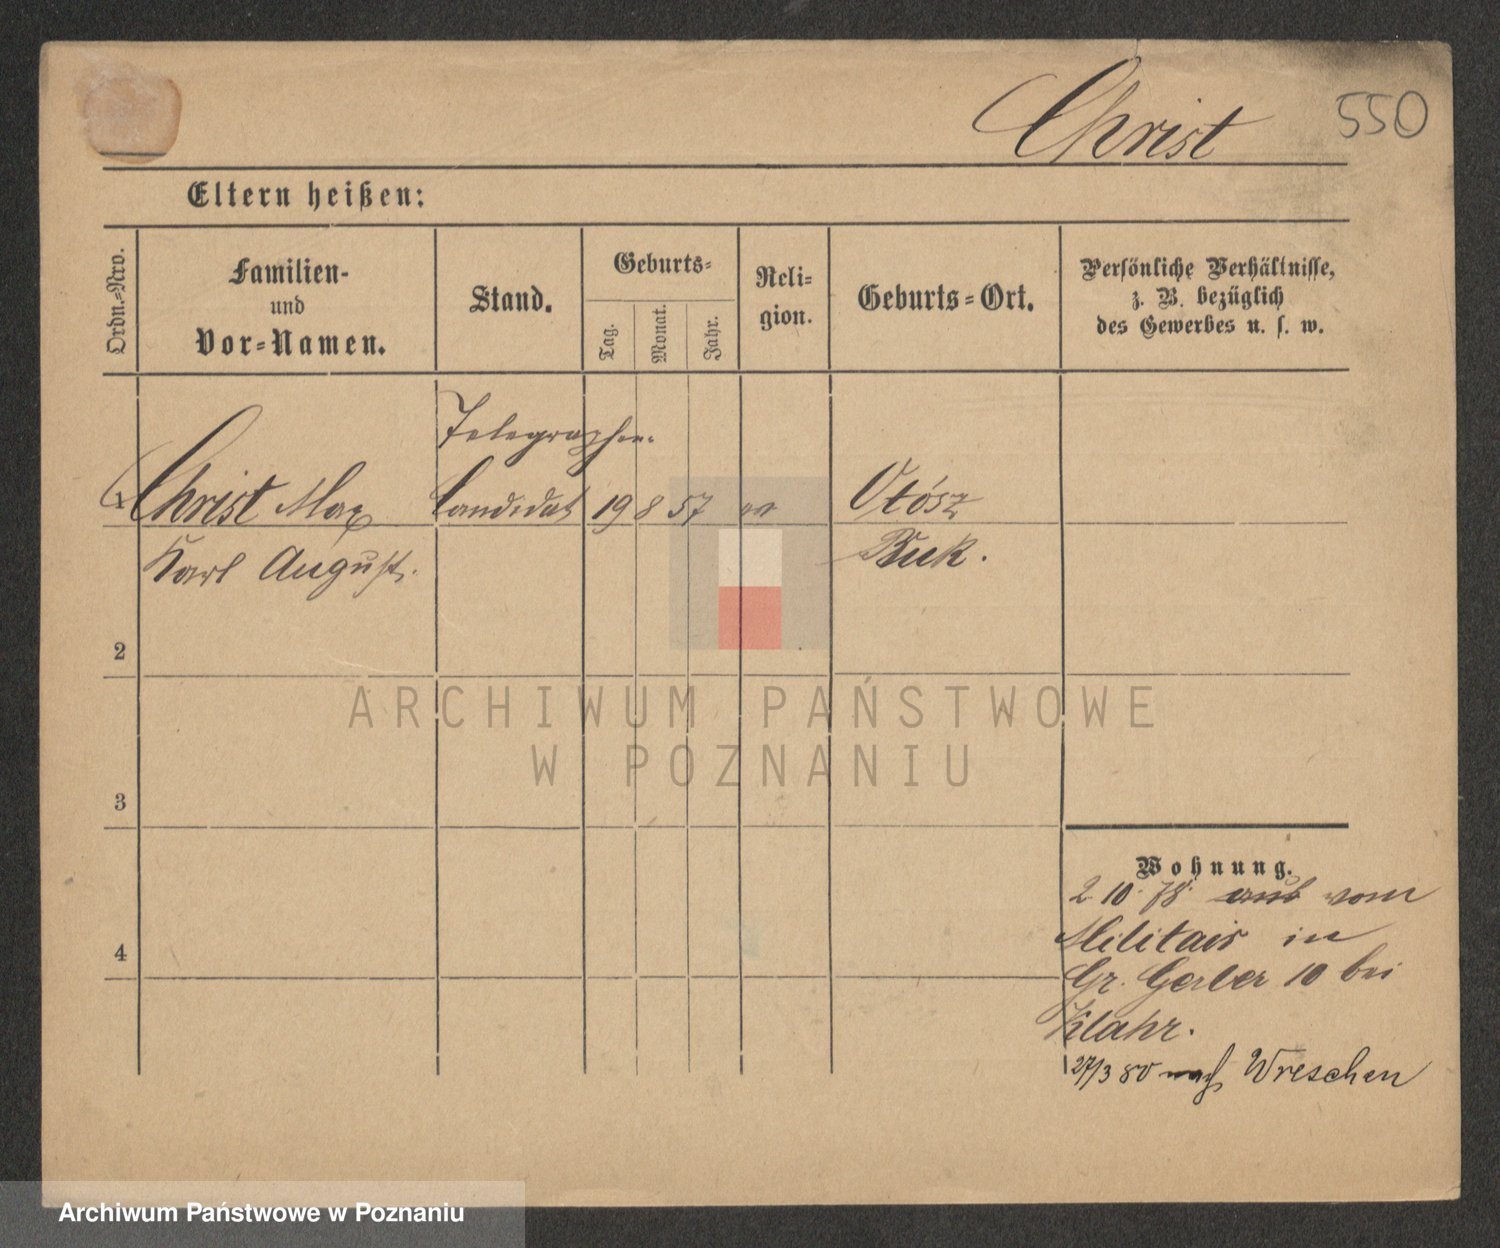 Christ
550
Eltern heißen:
Ordn.-Nro.
Familien-
und
Vor-Namen.
Stand.
Geburts-
Tag.
Monat.
Jahr.
Reli-
gion.
Geburts-Ort.
Persönliche Verhältnisse,
z. B. bezüglich
des Gewerbes u. s. w.
Telegraphen-
1 Christ Max Candidat 19 8 57 Otósz
Karl August. Buk.
2
ARCHIWUM PAŃSTWOWE
W POZNANIU
3
Wohnung.
2 10. 78. vom
4
Militair in
Gr. Gerber 10 bei
Klahr.
27/3 80 nach Wreschen
Archiwum Państwowe w Poznaniu